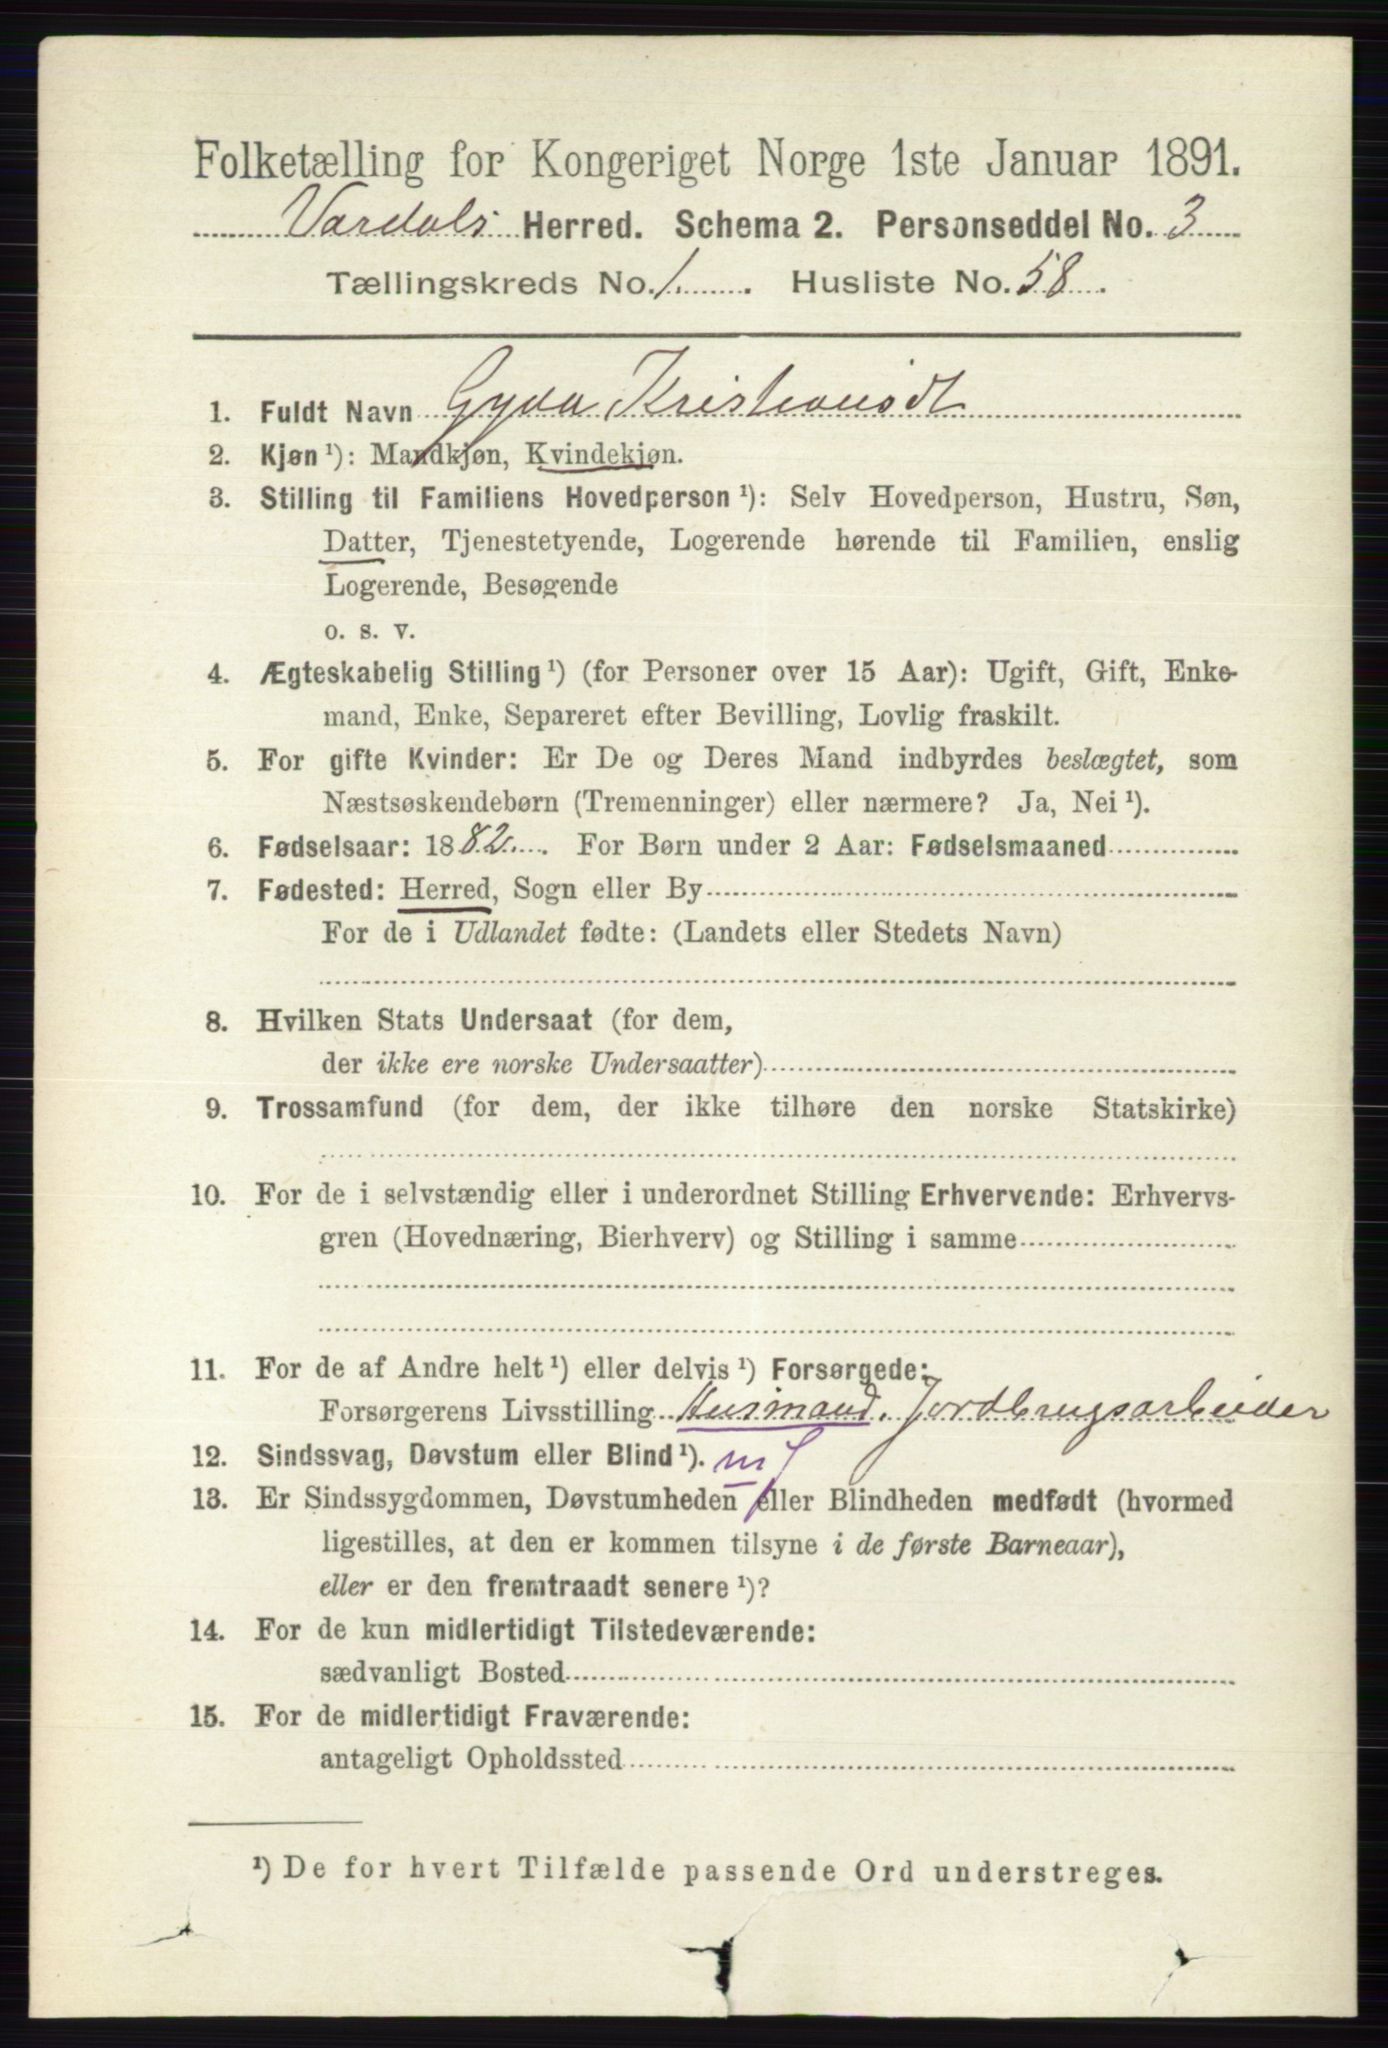 Folketælling for Kongeriget Norge 1ste Januar 1891.
Vardals Herred. Schema 2. Personseddel No. 3
Tællingskreds No. 1. Husliste No. 58
1. Fuldt Navn Gyda Kristiansdt
2. Kjøn ¹): Mandkjøn, Kvindekjøn.
3. Stilling til Familiens Hovedperson ¹): Selv Hovedperson, Hustru, Søn,
Datter, Tjenestetyende, Logerende hørende til Familien, enslig
Logerende, Besøgende
o. s. v.
4. Ægteskabelig Stilling ¹) (for Personer over 15 Aar): Ugift, Gift, Enke-
mand, Enke, Separeret efter Bevilling, Lovlig fraskilt.
5. For gifte Kvinder: Er De og Deres Mand indbyrdes beslægtet, som
Næstsøskendebørn (Tremenninger) eller nærmere? Ja, Nei ¹).
6. Fødselsaar: 1882. For Børn under 2 Aar: Fødselsmaaned
7. Fødested: Herred, Sogn eller By
For de i Udlandet fødte: (Landets eller Stedets Navn)
8. Hvilken Stats Undersaat (for dem,
der ikke ere norske Undersaatter)
9. Trossamfund (for dem, der ikke tilhøre den norske Statskirke)
10. For de i selvstændig eller i underordnet Stilling Erhvervende: Erhvervs-
gren (Hovednæring, Bierhverv) og Stilling i samme
11. For de af Andre helt ¹) eller delvis ¹) Forsørgede:
Forsørgerens Livsstilling Husmand. Jordbrugsarbeider
12. Sindssvag, Døvstum eller Blind ¹).
13. Er Sindssygdommen, Døvstumheden eller Blindheden medfødt (hvormed
ligestilles, at den er kommen tilsyne i de første Barneaar),
eller er den fremtraadt senere ¹)?
14. For de kun midlertidigt Tilstedeværende:
sædvanligt Bosted
15. For de midlertidigt Fraværende:
antageligt Opholdssted
¹) De for hvert Tilfælde passende Ord understreges.